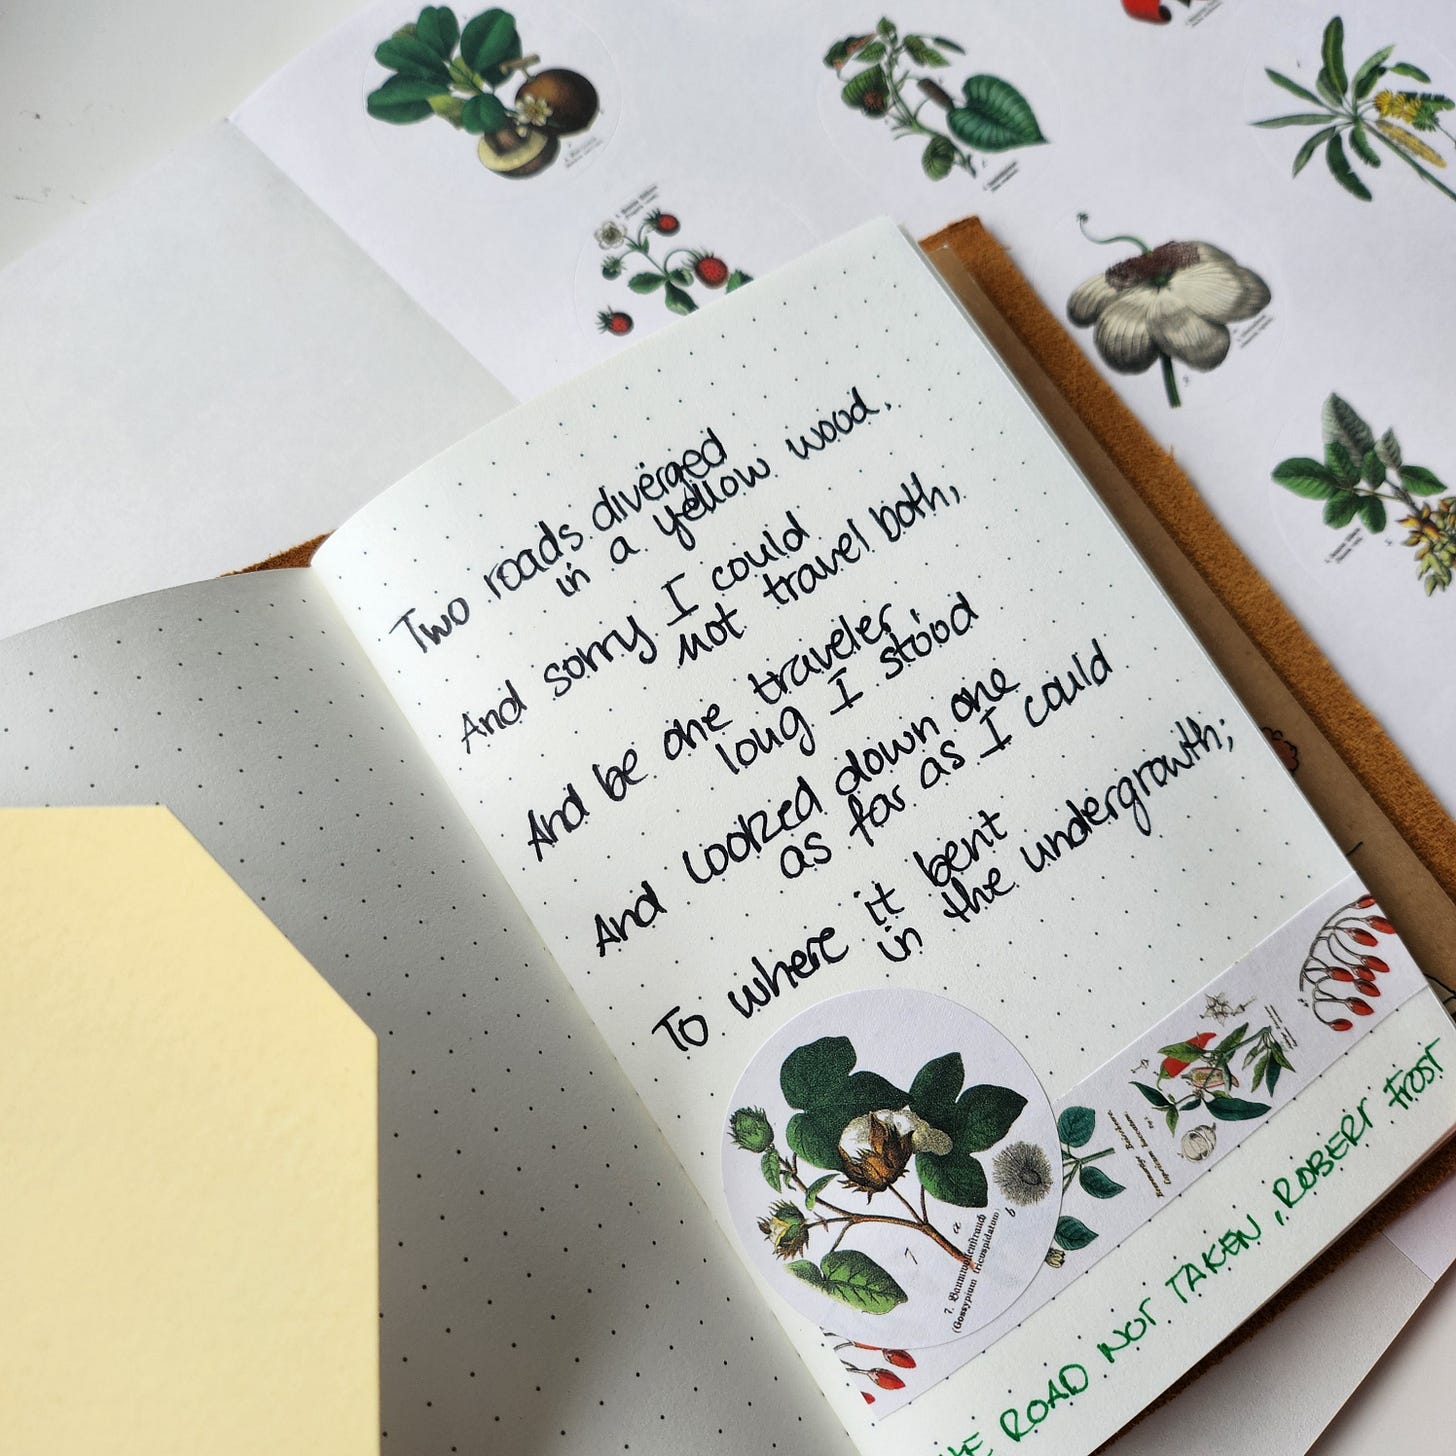 Two roads diverged
in a yellow wood,
And sorry I could
not travel both,
And be one traveler,
long I stood
And looked down one
as far as I could
To where it bent
in the undergrowth;
7. Baumwollenstrauch
(Gossypium tricuspidatum)
a
b
7
ROAD NOT TAKEN, ROBERT FROST